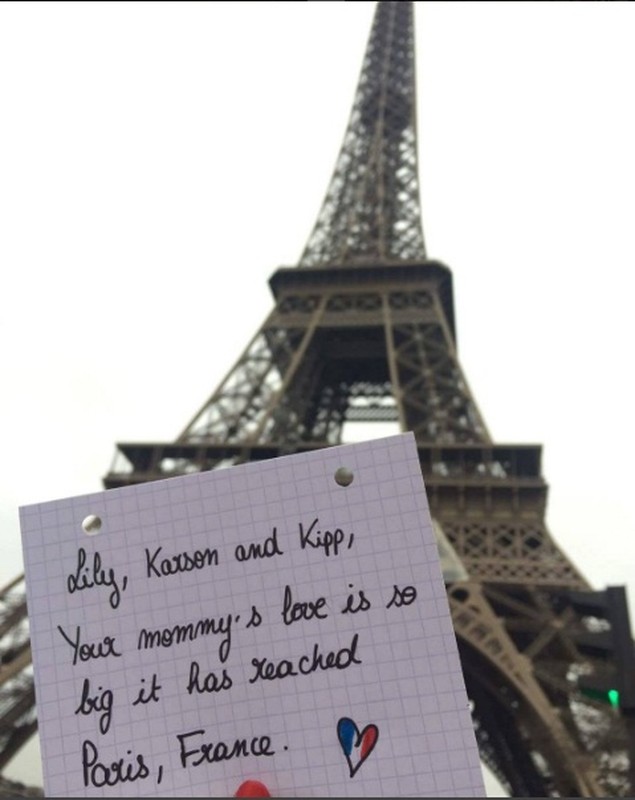 Lily, Karson and Kipp,
Your mommy's love is so
big it has reached
Paris, France.